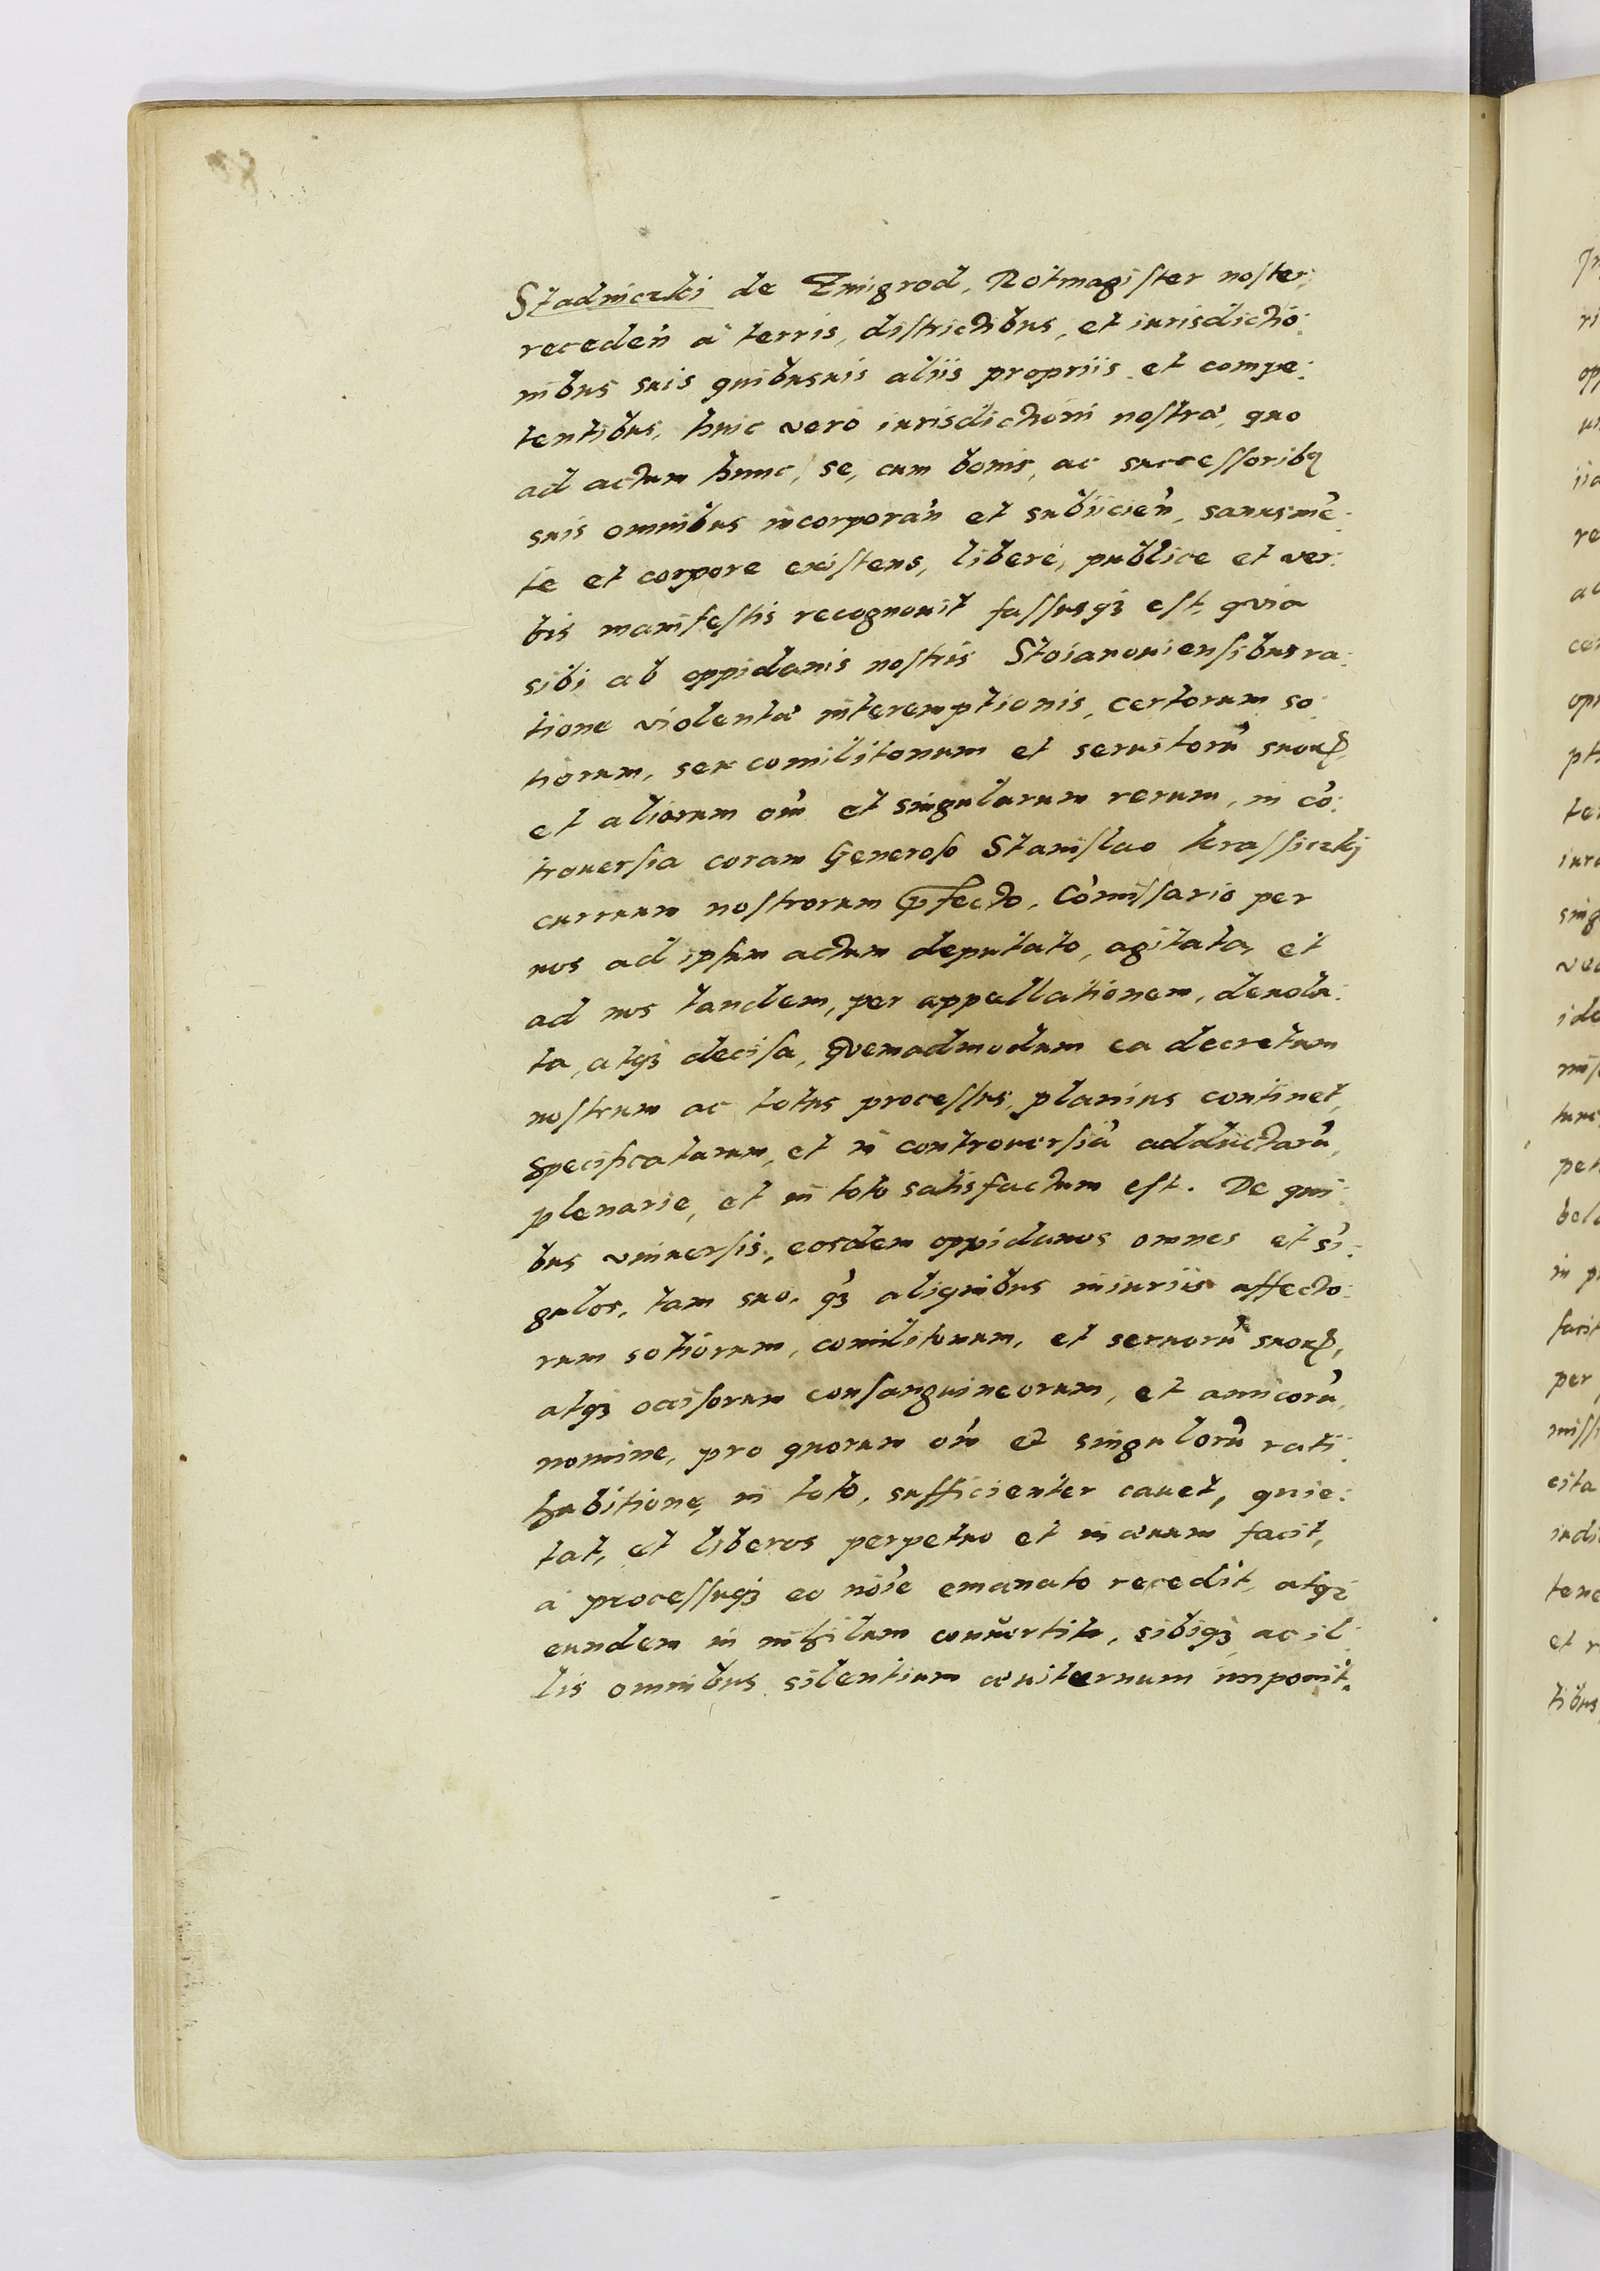 Stadniczki de Zmigrod, Rotmagister noster,
receden̄ à terris, districtibus, et iurisdictio:
nibus suis quibusuis aliis propriis et compe:
tentibus, huic verò iurisdictioni nostræ, quo
ad actum hunc, se, cum bonis, ac successoribꝫ
suis omnibus incorporan̄ et subiicien̄, sanus mē:
te et corpore existens, liberè, publice et ver:
bis manifestis recognouit fassusqꝫ est, quia
sibi ab oppidanis nostris Stoianouiensibus ra:
tione violentæ interemptionis, certorum so:
tiorum, seu comilitonum et seruitorū suorꝝ,
et aliorum om̄ et singularum rerum, in cō:
trouersia coram Generoso Stanislao Krassiczkij
curruum nostrorum p̄fecto, Com̄issario per
nos ad ipsum actum deputato, agitata, et
ad nos tandem, per appellationem, deuolu:
ta, atqꝫ decisa, Quemadmodum ea decretum
nostrum ac totus processus, planius continet,
specificatarum, et in controuersiā adductarū,
plenarie, et in toto satisfactum est. De qui:
bus vniuersis, eosdem oppidanos omnes et sī:
gulos, tam suo, qꝫ aliquibus iniuriis affecto:
rum sotiorum, comilitonum, et seruorū suorꝝ,
atqꝫ occisorum consanguineorum, et amicorū,
nomine, pro quorum om̄ et singulorū rati:
habitione, in toto, sufficienter cauet, quie:
tat, et liberos perpetuo et in æuum facit,
à processuqꝫ eo nōie emanato recedit, atqꝫ
eundem in nihilum conuertit, sibiqꝫ ac il:
lis omnibus silentium æuiternum imponit.